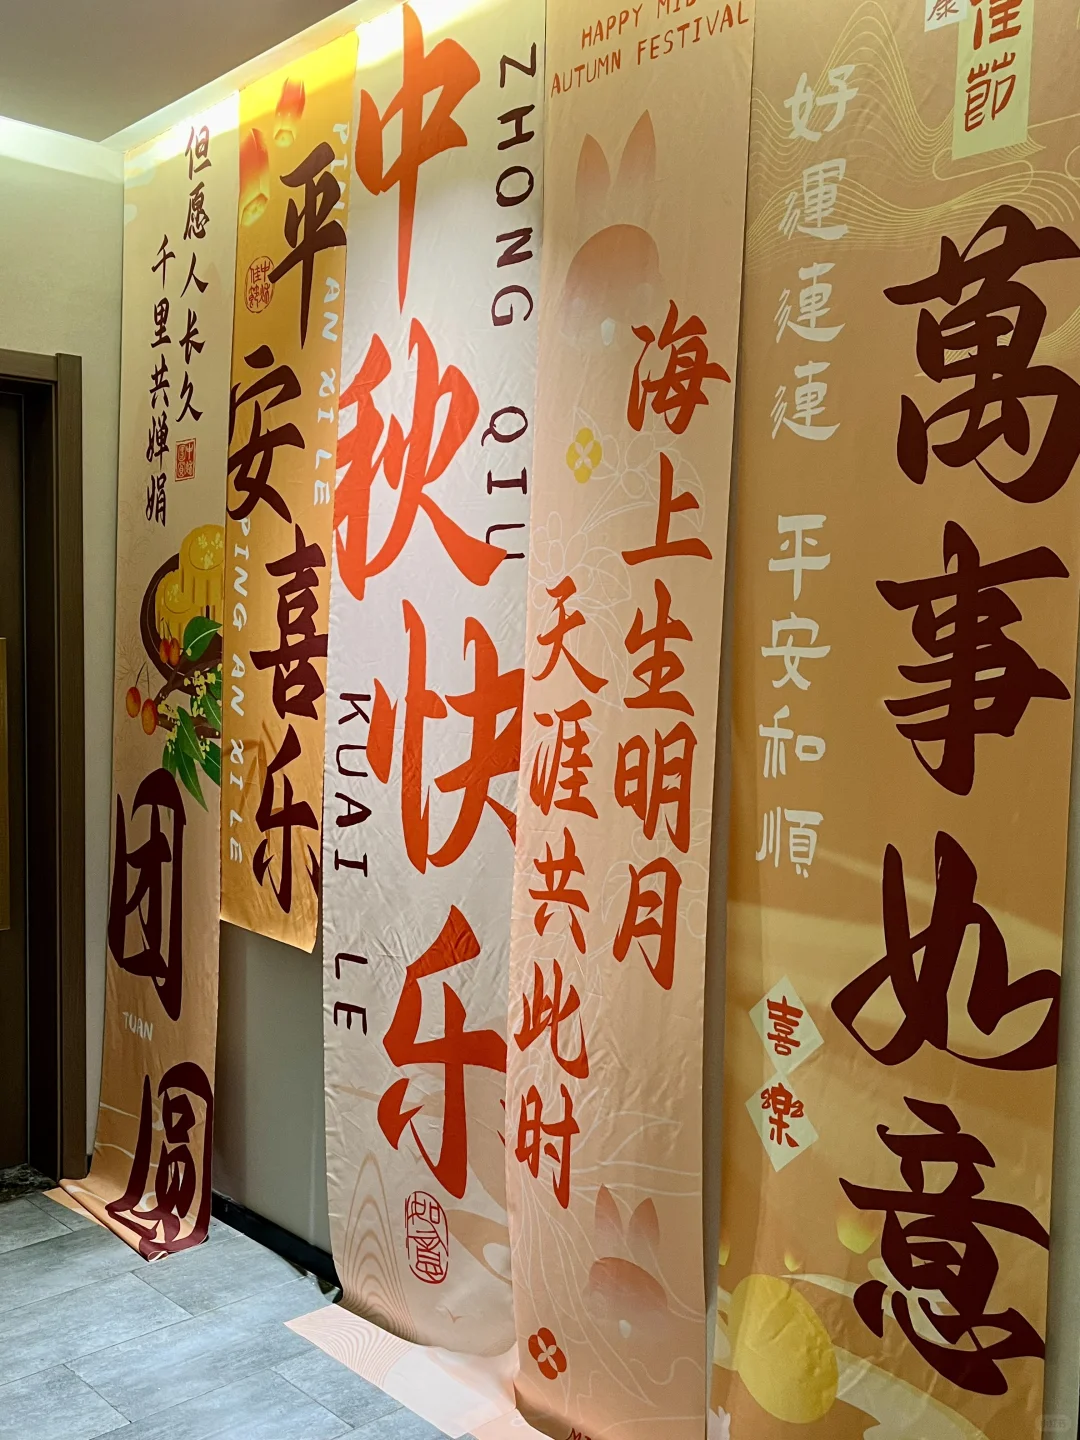 但愿人长久
千里共婵娟
团圆
TUAN
平安喜乐
PING AN XI LE
PING AN XI LE
中秋快乐
ZHONG QIU
KUAI LE
如意
HAPPY MID
AUTUMN FESTIVAL
海上生明月
天涯共此时
佳節
好運連連
平安和順
萬事如意
喜樂